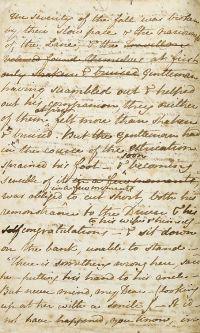 The severity of the fall was broken
by their slow pace & the narrowness
of the Lane; & the
at first
only shaken & bruised Gentleman
having scrambled out & helped
out his companion they neither
of them at first felt more than shaken
& bruised. But the Gentleman had
in the course of the extrication
sprained his foot & soon becoming
sensible of it
in a few moments
was obliged to cut short, both his
remonstrance to the Driver & his
congratulations to his wife & himself
& sit down
on the bank, unable to stand.
There is something wrong here, said
he putting his hand to his ancle.
But never mind, my Dear (looking
up at her with a smile) It
not have happened, you know, in